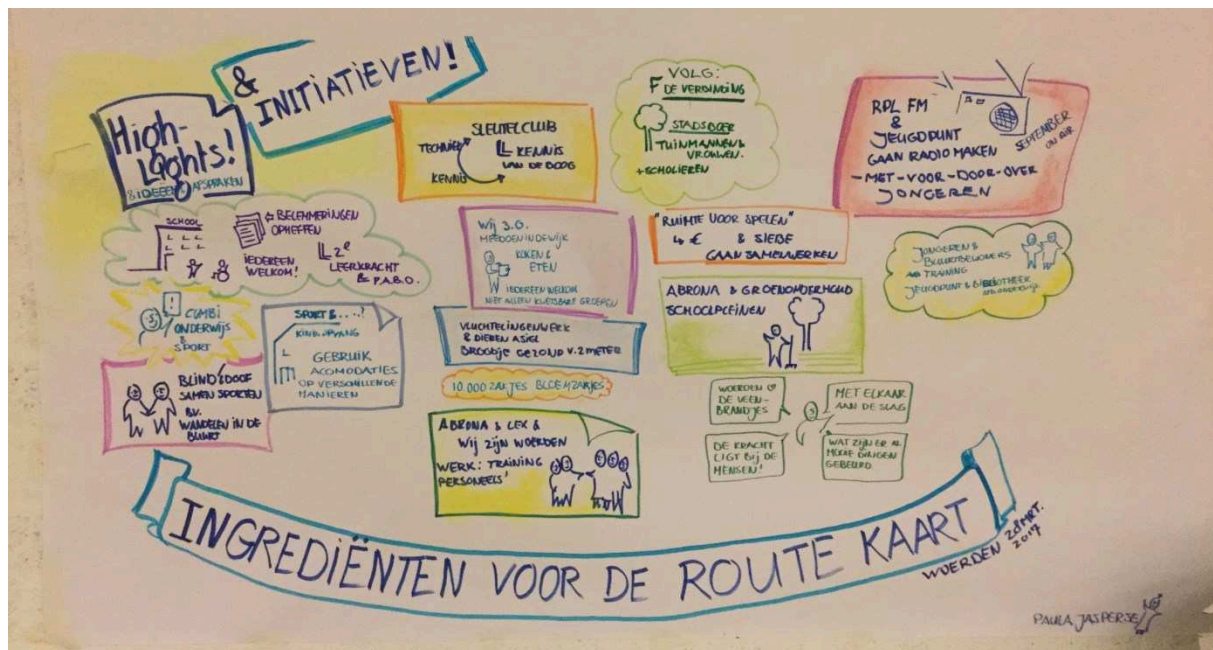 High-
Lights!
& IDEEËN & AFSPRAKEN
& INITIATIEVEN!
SLEUTELCLUB
TECHNIEK
KENNIS
VAN DE BOOG
KENNIS
VOLG:
F DE VERBINDING
STADSBOER
TUINMANNEN &
VROUWEN.
+ SCHOLIEREN
RPL FM
&
JEUGDPUNT
GAAN RADIO MAKEN
- MET-VOOR-DOOR-OVER
JONGEREN
SEPTEMBER
ON AIR
SCHOOL
BELEMMERINGEN
OPHEFFEN
IEDEREEN
WELKOM!
2e
LEERKRACHT
& P.A.B.O.
WIJ 3.0.
MEEDOEN IN DE WIJK
KOKEN &
ETEN
IEDEREEN WELKOM
NIET ALLEEN KWETSBARE GROEPEN
"RUIMTE VOOR SPELEN"
€ & SIEBE
GAAN SAMENWERKEN
JONGEREN &
BUURTBEWONERS
TRAINING
JEUGDPUNT & BIBLIOTHEEK
COMBI
ONDERWIJS
&
SPORT
SPORT & .....?
KINDEROPVANG
GEBRUIK
ACOMODATIES
OP VERSCHILLENDE
MANIEREN
VLUCHTELINGENWERK
& DIEREN ASIEL
BROODJE GEZOND V. 2 METER
ABRONA & GROENONDERHOUD
SCHOOLPLEINEN
10.000 ZAKJES BLOEMZAKJES
BLIND & DOOF
SAMEN SPORTEN
B.V.
WANDELEN IN DE
BUURT
ABRONA & LEX &
WIJ ZIJN WOERDEN
WERK: TRAINING
PERSONEELS'
WOERDEN
DE VEEN-
BRANDJES
MET ELKAAR
AAN DE SLAG
DE KRACHT
LIGT BIJ DE
MENSEN!
WAT ZIJN ER AL
MOOIE DINGEN
GEBEURD
INGREDIËNTEN VOOR DE ROUTE KAART
WOERDEN 28 MRT.
2017
PAULA JASPERSE